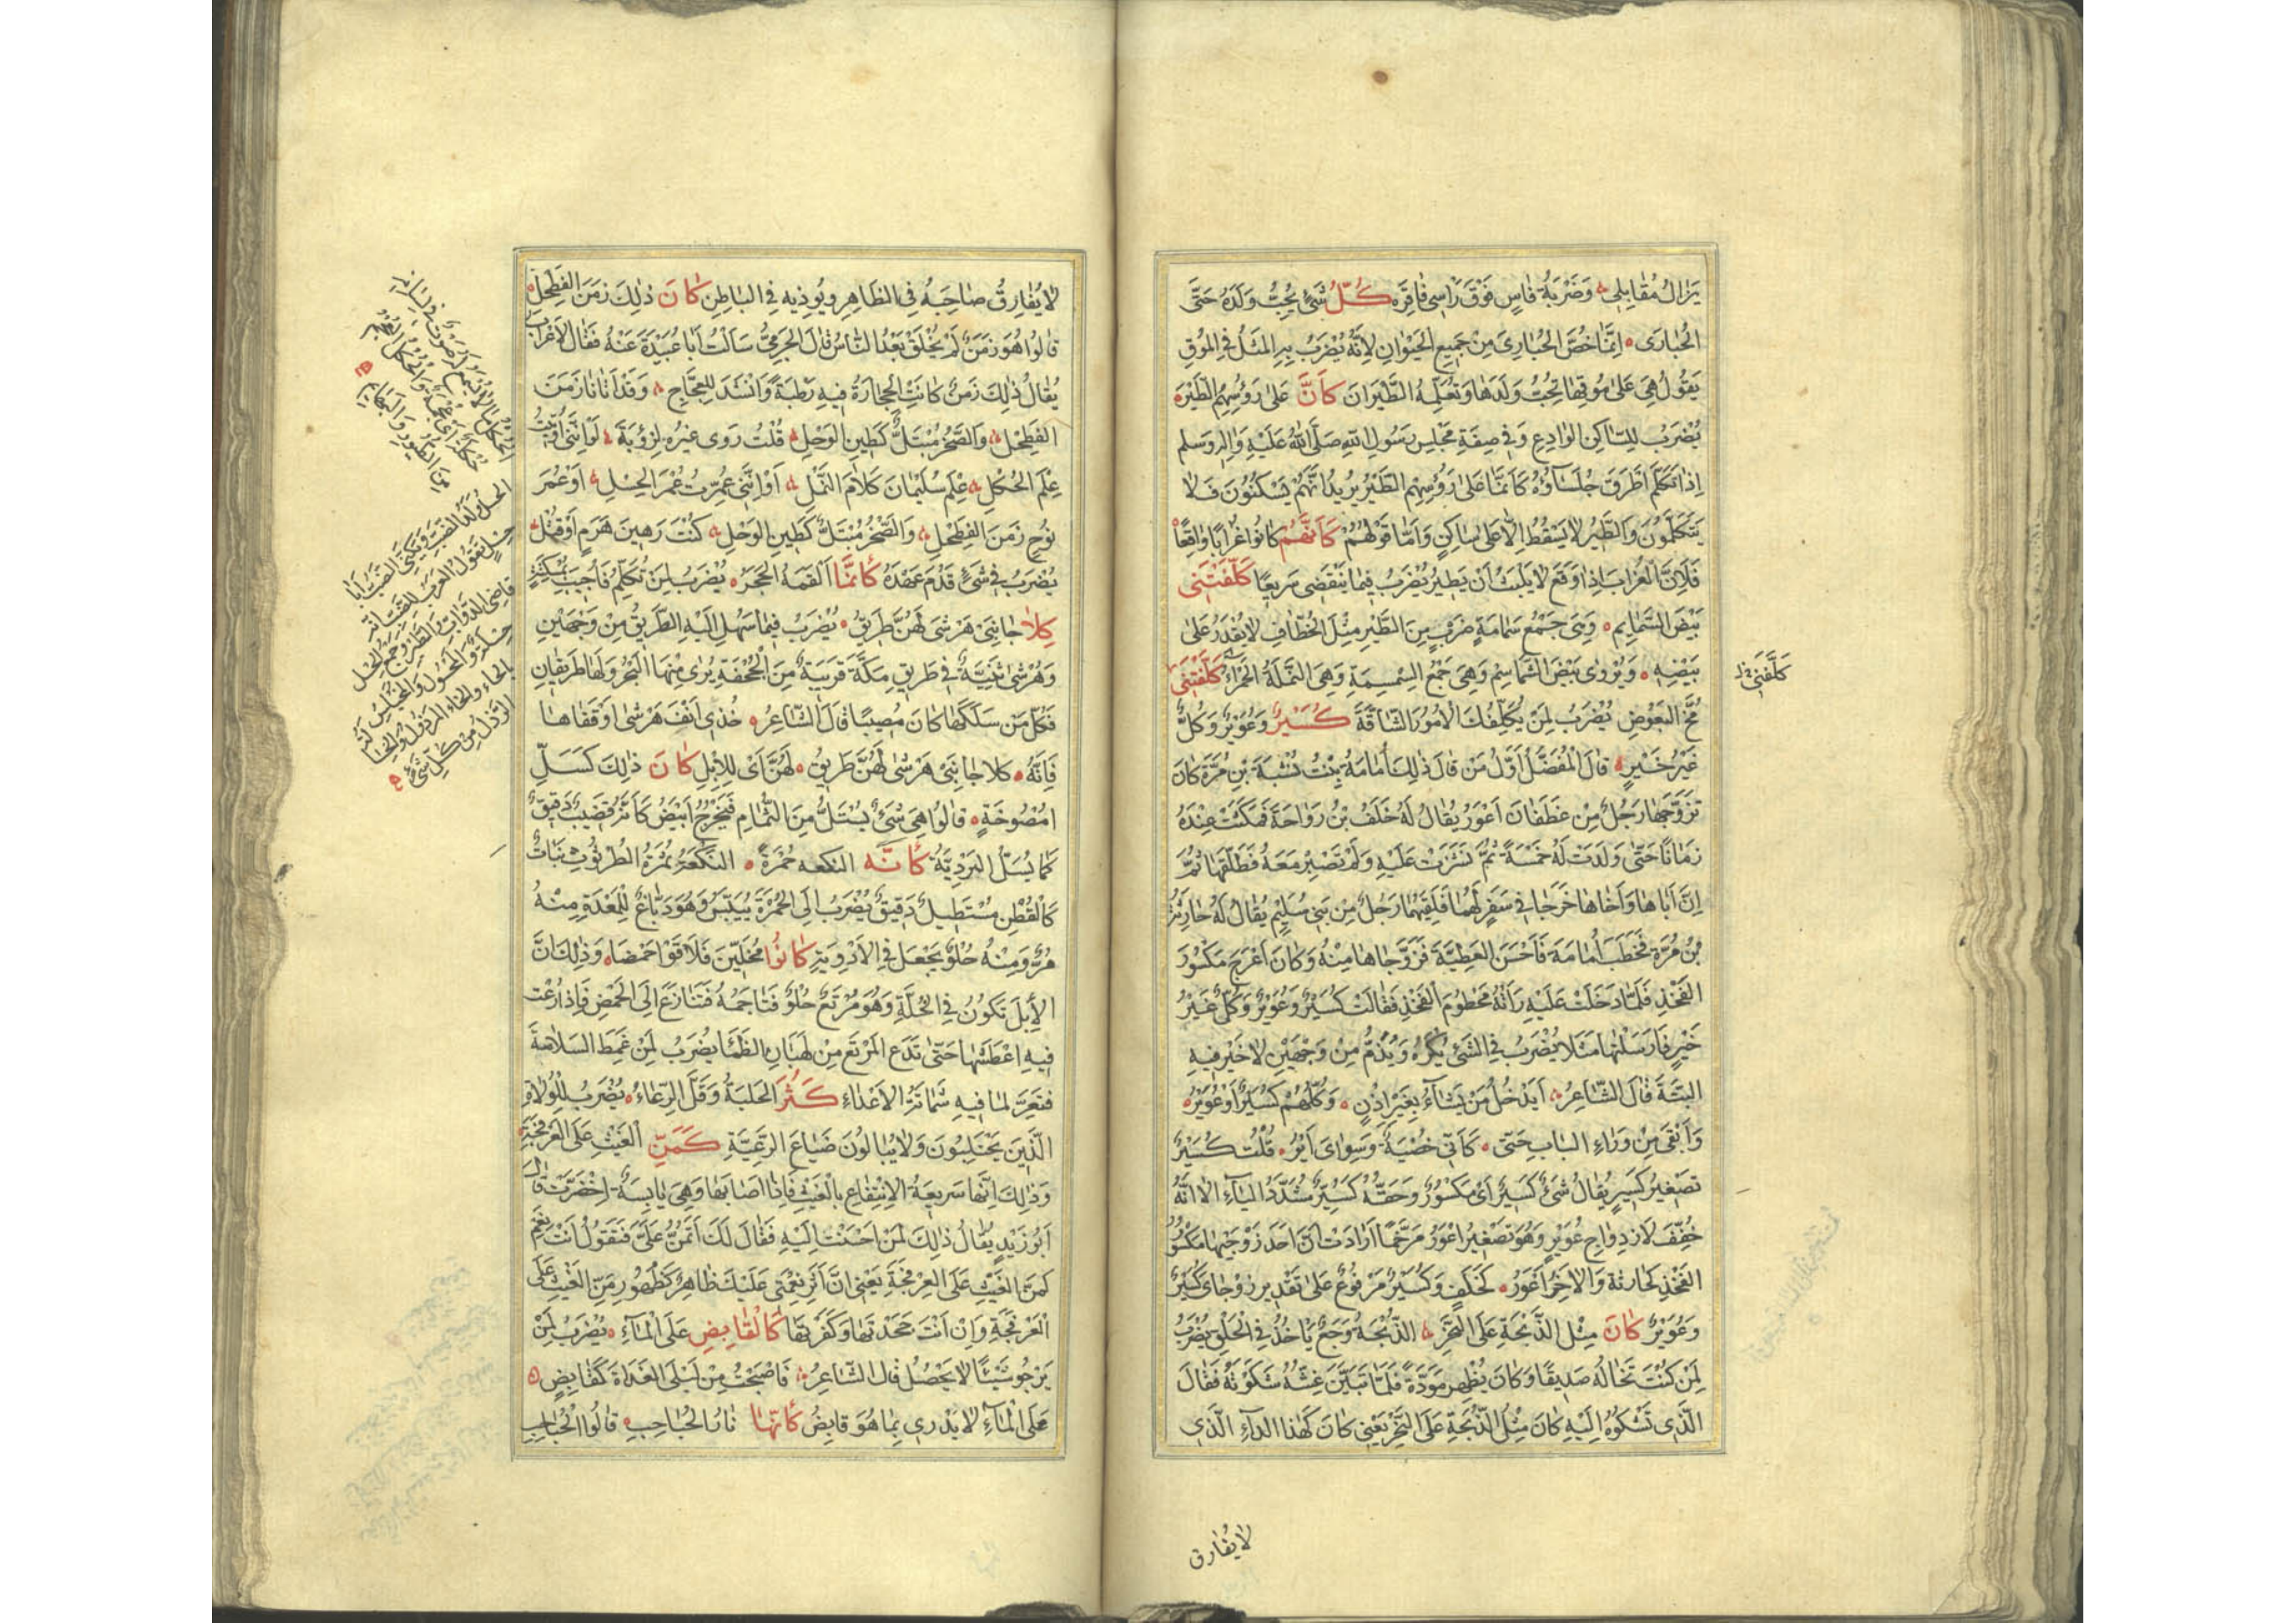 يَزَالُ مُقَابِلِي وَضَرْبَةُ فَاسٍ فَوْقَ رَاسِي فَاقِرَه كُلُّ شَيْءٍ يُحِبُّ وَلَدَهُ حَتَّى
الحُبَارَى اِنَّمَا خُصَّ الحُبَارَى مِنْ جَمِيعِ الحَيَوَانِ لِاَنَّهُ يُضْرَبُ بِهِ المَثَلُ فِي المُوقِ
يَقُولُ هِيَ عَلَى مُوقِهَا تُحِبُّ وَلَدَهَا وَتُعَلِّمُهُ الطَّيَرَانَ كَاَنَّ عَلَى رُؤُسِهِمُ الطَّيْرَ
يُضْرَبُ لِلسَّاكِنِ الوَادِعِ وَفِي صِفَةِ مَجْلِسِ رَسُولِ اللهِ صَلَّى اللهُ عَلَيْهِ وَالِهِ وَسلم
اِذَا تَكَلَّمَ اَطْرَقَ جُلَسَاؤُهُ كَاَنَّمَا عَلَى رُؤُسِهِم الطَّيْرُ يُرِيدُ اَنَّهُمْ يَسْكُنُونَ فَلَا
يَتَكَلَّمُونَ وَالطَّيْرُ لَا يَسْقُطُ اِلَّا عَلَى سَاكِنٍ وَاَمَّا قَوْلُهُمْ كَاَنَّهُمْ كَانُوا غُرَابًا وَاقِعًا
فَلِاَنَّ الغُرَابَ اِذَا وَقَعَ لَا يَلْبَثُ اَنْ يَطِيرَ يُضْرَبُ فِيمَا يَنْقَضِي سَرِيعًا كَلَّفْتَنِي
بَيْضَ السَّمَايِمِ وَهِيَ جَمْعُ سَمَامَةٍ ضَرْبٌ مِنَ الطَّيْرِ مِثْلُ الخُطَّافِ لَا يُقْدَرُ عَلَى
بَيْضِهِ وَيُرْوَى بَيْضَ السَّمَاسِمِ وَهِيَ جَمْعُ السِّمْسِمَةِ وَهِيَ النَّمْلَةُ الحَمْرَآءُ كَلَّفْتَنِي
مُخَّ البَعُوضِ يُضْرَبُ لِمَنْ يُكَلِّفُكَ الاُمُورَ الشَّاقَّةَ كُسَيْرٌ وَعُوَيْرٌ وَكُلٌّ
غَيْرُ خَيْرٍ قَالَ المُفَضَّلُ اَوَّلُ مَنْ قَالَ ذَلِكَ اُمَامَةُ بِنْتُ نُشْبَةَ بْنِ مُرَّةَ كَانَ
تَزَوَّجَهَا رَجُلٌ مِنْ غَطَفَانَ اَعْوَرُ يُقَالُ لَهُ خَلَفُ بْنُ رَوَاحَةَ فَمَكَثَتْ عِنْدَهُ
زَمَانًا حَتَّى وَلَدَتْ لَهُ خَمْسَةً ثُمَّ نَشَزَتْ عَلَيْهِ وَلَمْ تَصْبِرْ مَعَهُ فَطَلَّقَهَا ثُمَّ
اِنَّ اَبَاهَا وَاَخَاهَا خَرَجَا فِي سَفَرٍ لَهُمَا فَلَقِيَهُمَا رَجُلٌ مِنْ بَنِي سُلَيْمٍ يُقَالُ لَهُ حَارِثَةُ
بْنُ مُرَّةَ فَخَطَبَ اُمَامَةَ فَاَحْسَنَ العَطِيَّةَ فَزَوَّجَاهَا مِنْهُ وَكَانَ اَعْرَجَ مَكْسُورَ
الفَخْذِ فَلَمَّا دَخَلَتْ عَلَيْهِ رَاَتْهُ مَحْطُومَ الفَخْذِ فَقَالَتْ كُسَيْرٌ وَعُوَيْرٌ وَكُلٌّ غَيْرُ
خَيْرٍ فَاَرْسَلَتْهَا مَثَلًا يُضْرَبُ فِي الشَّيْءِ يُكْرَهُ وَيُذَمُّ مِنْ وَجْهَيْنِ لَا خَيْرَ فِيهِ
البَتَّةَ قَالَ الشَّاعِرُ اَيَدْخُلُ مَنْ يَشَآءُ بِغَيْرِ اِذْنٍ وَكُلُّهُمْ كُسَيْرٌ اَوْ عُوَيْرُ
وَاَبْقَى مِنْ وَرَاءِ البَابِ حَتَّى كَاَنِّي خُصْيَةٌ وَسِوَايَ اَيْرُ قُلْتُ كُسَيْرٌ
تَصْغِيرُ كَسِيرٍ يُقَالُ شَيْءٌ كَسِيرٌ اَيْ مَكْسُورٌ وَحَقُّهُ كُسَيِّرٌ مُشَدَّدُ اليَآءِ اِلَّا اَنَّهُ
خُفِّفَ لِازْدِوَاجِ عُوَيْرٍ وَهُوَ تَصْغِيرُ اَعْوَرَ مُرَخَّمًا اَرَادَتْ اَنَّ اَحَدَ زَوْجَيْهَا مَكْسُورُ
الفَخْذِ كَحَارِثَةَ وَالاخَرُ اَعْوَرُ كَخَلَفٍ وَكُسَيْرٌ مَرْفُوعٌ عَلَى تَقْدِيرِ زَوْجَايَ كُسَيْرٌ
وَعُوَيْرٌ كَانَ مِثْلَ الذُّبْحَةِ عَلَى النَّحْرِ الذُّبْحَةُ وَجَعٌ يَاْخُذُ فِي الحَلْقِ يُضْرَبُ
لِمَنْ كُنْتَ تَخَالُهُ صَدِيقًا وَكَانَ يُظْهِرُ مَوَدَّةً فَلَمَّا تَبَيَّنَ غِشُّهُ شَكَوْتَهُ فَقَالَ
الَّذِي تَشْكُوهُ اِلَيْهِ كَانَ مِثْلَ الذُّبْحَةِ عَلَى النَّحْرِ يَعْنِي كَانَ كَهَذَا الدَّآءِ الَّذِي
كَلَّفْتَنِي
لَا يُفَارِق
لَا يُفَارِقُ صَاحِبَهُ فِي الظَّاهِرِ وَيُوذِيهِ فِي البَاطِنِ كَانَ ذَلِكَ زَمَنَ الفِطَحْلِ
قَالُوا هُوَ زَمَنٌ لَمْ يُخْلَقْ بَعْدُ النَّاسُ قَالَ الجَرْمِيُّ سَاَلْتُ اَبَا عُبَيْدَةَ عَنْهُ فَقَالَ الاَعْرَابُ
يُقَالُ ذَلِكَ زَمَنٌ كَانَتِ الحِجَارَةُ فِيهِ رَطْبَةً وَاَنْشَدَ لِلعَجَّاجِ وَقَدْ اَتَانَا زَمَنَ
الفِطَحْلِ وَالصَّخْرُ مُبْتَلٌّ كَطِينِ الوَحْلِ قُلْتُ رَوَى غَيْرُهُ لِرُؤْبَةَ لَوْ اَنَّنِي اُوتِيتُ
عِلْمَ الحُكْلِ عِلْمَ سُلَيْمَانَ كَلَامَ النَّمْلِ اَوْ اَنَّنِي عُمِّرْتُ عُمْرَ الحِسْلِ اَوْ عُمْرَ
نُوحٍ زَمَنَ الفِطَحْلِ وَالصَّخْرُ مُبْتَلٌّ كَطِينِ الوَحْلِ كُنْتُ رَهِينَ هَرَمٍ اَوْ قَتْلِ
يُضْرَبُ فِي شَيْءٍ قَدُمَ عَهْدُهُ كَاَنَّمَا اَلْقَمَهُ الحَجَرَ يُضْرَبُ لِمَنْ تَكَلَّمَ فَاُجِيبَ بِمُسْكِتَةٍ
كِلَا جَانِبَيْ هَرْشَى لَهُنَّ طَرِيقُ يُضْرَبُ فِيمَا سَهُلَ اِلَيْهِ الطَّرِيقُ مِنْ وَجْهَيْنِ
وَهَرْشَى ثَنِيَّةٌ فِي طَرِيقِ مَكَّةَ قَرِيبَةٌ مِنَ الجُحْفَةِ يُرَى مِنْهَا البَحْرُ وَلَهَا طَرِيقَانِ
فَكُلُّ مَنْ سَلَكَهَا كَانَ مُصِيبًا قَالَ الشَّاعِرُ خُذِي اَنْفَ هَرْشَى اَوْ قَفَاهَا
فَاِنَّهُ كِلَا جَانِبَيْ هَرْشَى لَهُنَّ طَرِيقُ لَهُنَّ اَيْ لِلْاِبِلِ كَانَ ذَلِكَ كَسَلِّ
اُمْصُوخَةٍ قَالُوا هِيَ شَيْءٌ يُسْتَلُّ مِنَ الثُّمَامِ فَيَخْرُجُ اَبْيَضُ كَاَنَّهُ قَضِيبٌ دَقِيقٌ
كَمَا يُسَلُّ البَرْدِيَّةُ كَاَنَّه النكعه حُمْرَةً النَّكَعَةُ ثَمَرَةُ الطُّرْثُوثِ نَبَاتٌ
كَالقُطْنِ مُسْتَطِيلٌ دَقِيقٌ يُضْرَبُ اِلَى الحُمْرَةِ يُيَبَّسُ وَهُوَ دَبَّاغٌ لِلْمَعِدَةِ مِنْهُ
مُرٌّ وَمِنْهُ حُلْوٌ يُجْعَلُ فِي الاَدْوِيَةِ كَانُوا مُخِلِّينَ فَلَاقَوْا حَمْضًا وَذَلِكَ اَنَّ
الاِبِلَ تَكُونُ فِي الخُلَّةِ وَهُوَ مَرْتَعٌ حُلْوٌ فَتَاجَمُهُ فَتَنَازَعُ اِلَى الحَمْضِ فَاِذَا رَعَتْ
فِيهِ اَعْطَشَهَا حَتَّى تَدَعَ المَرْتَعَ مِنْ لَهَبَانِ الظَّمَا يُضْرَبُ لِمَنْ غَمِطَ السَّلَامَةَ
فَتَعَرَّضَ لِمَا فِيهِ شَمَاتَةُ الاَعْدَاءِ كَثُرَ الحَلَبَةُ وَقَلَّ الرِّعَاءُ يُضْرَبُ لِلْوُلَاةِ
الَّذِينَ يَحْتَلِبُونَ وَلَا يُبَالُونَ ضَيَاعَ الرَّعِيَّةِ كَمَنِّ الغَيْثِ عَلَى العَرْفَجَةِ
وَذَلِكَ اَنَّهَا سَرِيعَةُ الاِنْتِفَاعِ بِالغَيْثِ فَاِذَا اَصَابَهَا وَهِيَ يَابِسَةٌ اِخْضَرَّتْ قَالَ
اَبُو زَيْدٍ يُقَالُ ذَلِكَ لِمَنْ اَحْسَنْتَ اِلَيْهِ فَقَالَ لَكَ اَتَمُنُّ عَلَيَّ فَتَقُولُ اَنْتَ نَعَمْ
كَمَنِّ الغَيْثِ عَلَى العَرْفَجَةِ يَعْنِي اَنَّ اَثَرَ نِعْمَتِي عَلَيْكَ ظَاهِرٌ كَظُهُورِ مَنِّ الغَيْثِ عَلَى
العَرْفَجَةِ وَاِنْ اَنْتَ جَحَدْتَهَا وَكَفَرْتَهَا كَالقَابِضِ عَلَى المَآءِ يُضْرَبُ لِمَنْ
يَرْجُو شَيْئًا لَا يَحْصُلُ قَالَ الشَّاعِرُ فَاَصْبَحْتُ مِنْ لَيْلَى الغَدَاةَ كَقَابِضٍ
عَلَى المَآءِ لَا يَدْرِي بِمَا هُوَ قَابِضُ كَاَنَّهَا نَارُ الحُبَاحِبِ قَالُوا الحُبَاحِب
الحسل ولد الضب ويكنى الضب ابا
حسل تقول العرب للضب انه
قاضي الدواب والطير وجمع الحسل